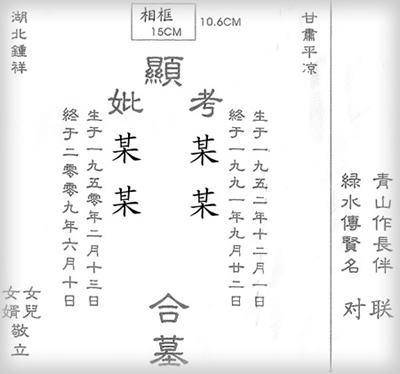 相框
15CM
10.6CM
青山作長伴
綠水傳賢名
对联
甘肅平凉
生于一九五二年十二月一日
終于一九九一年九月廿二日
顯
考某某
妣某某
合墓
生于一九五零年二月十三日
終于二零零九年六月十日
湖北鍾祥
女兒
女婿
敬立